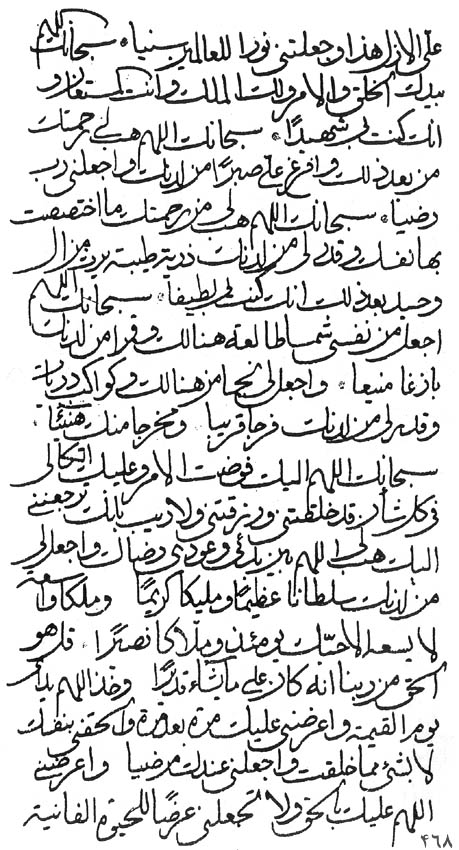 على الازل هذا وجعلتني نورا للعالمين سنيا سبحانك اللهم
بيدك الخلق والامر ولك الملك وانت المستعان و
انك كنت لي شهيدًا سبحانك اللهم هب لي رحمتك
من بعد ذلك وافرغ علي صبرًا من لدنك واجعلني رب
رضيا سبحانك اللهم هب لي من رحمتك ما اختصصت
بها نفسك وقدر لي من لدنك ذرية طيبة يرث من ال
وحيد بعد ذلك انك كنت لي لطيفا سبحانك اللهم
اجعل من نفسي شمسا طالعة هنالك وقمرا من لدنك
بازغا منيعا واجعل لي نجما من هنالك وكواكب دريات
وقدر لي من لدنك فرجا قريبا ومخرجا منك هنيئا
سبحانك اللهم اليك فوضت الامر وعليك اتكالي
في كل شأن قد خلقتني ورزقتني ولا ريب بانك ترجعني
اليك هب لي اللهم بين بدئي وعودي رضاك واجعل لي
من لدنك سلطانا عظيمًا ومليكا كريمًا وملكا واسعة
لا يسعه الا حبك يومئذ وملاكا نصيرًا قل هو
الحق من ربنا انه كان على ما يشاء قديرًا وخذ اللهم بيدي
يوم القيمة واعرضني عليك مرة بعد مرة والحقني بنفسك
لا بشئ مما خلقت واجعلني عندك مرضيا واعرضني
اللهم عليك بالحق ولا تجعلني عرضًا للحيوة الفانية
٤٦٨